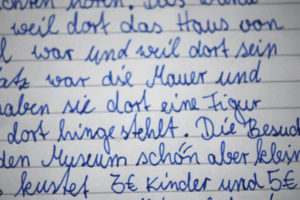 hören. Das wurde
weil dort das Haus von
l war und weil dort sein
atz war die Mauer und
haben sie dort eine Figur
dort hingestehlt. Die Besuch
den Museum schön aber klein
s kustet 3€ Kinder und 5€